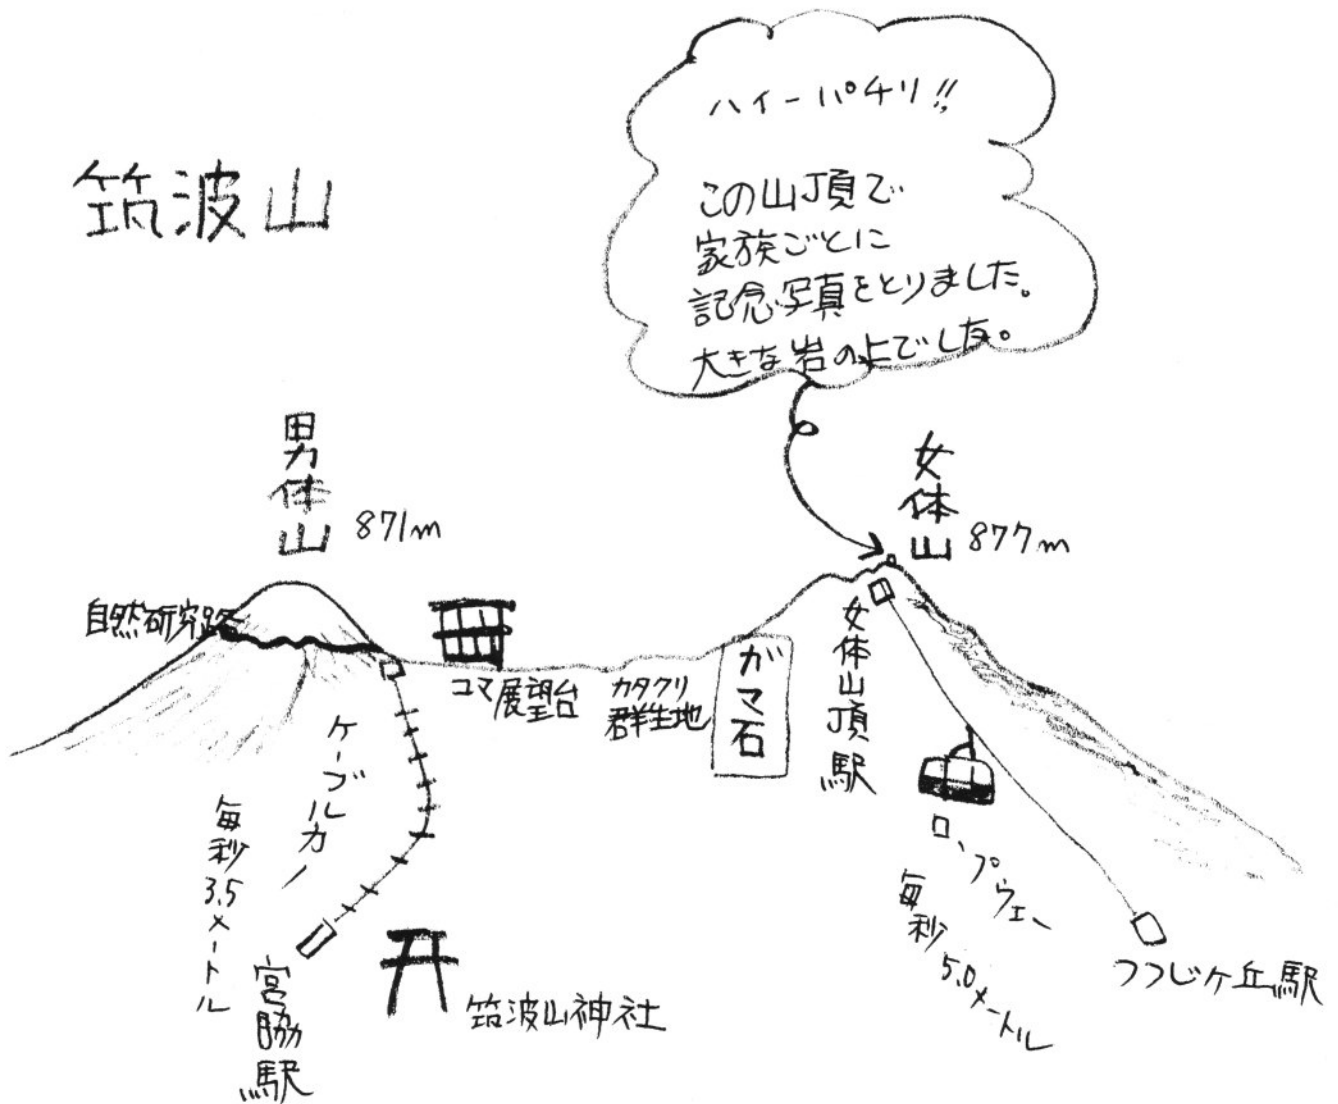 筑波山
ハイーパチリ!!
この山頂で
家族ごとに
記念写真をとりました。
大きな岩の上でした。
男体山
871m
女体山
877m
自然研究路
コマ展望台
カタクリ
群生地
ガマ石
女体山頂駅
ケーブルカー
毎秒3.5メートル
宮脇駅
筑波山神社
ロープウェー
毎秒5.0メートル
つつじケ丘駅